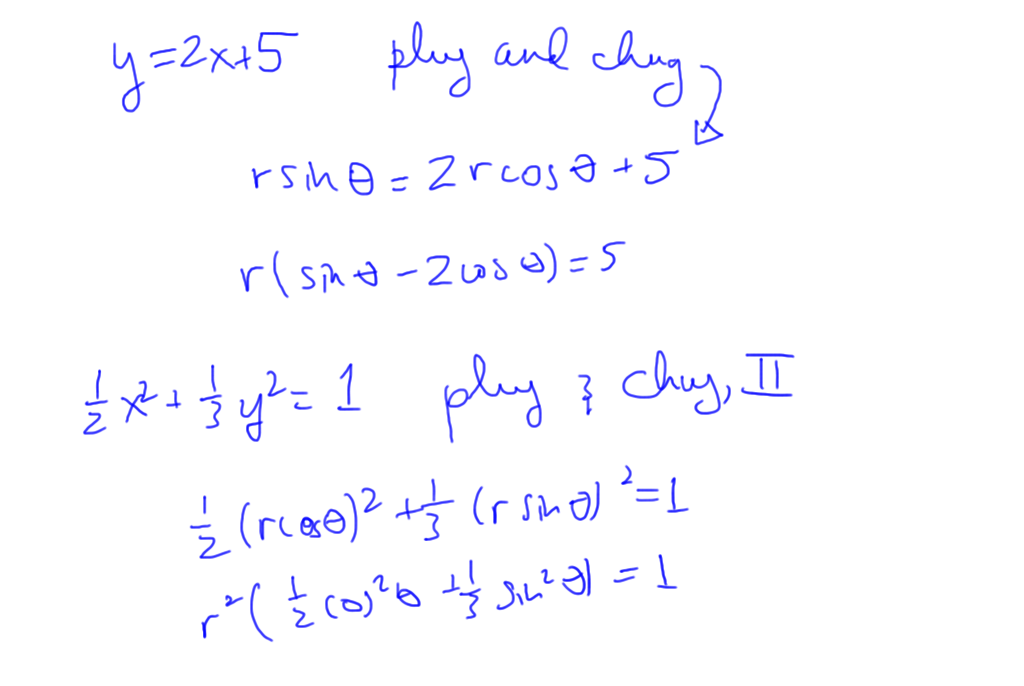 y=2x+5 plug and chug
r sin θ = 2 r cos θ + 5
r(sin θ - 2 cos θ) = 5
1/2 x² + 1/3 y² = 1 plug & chug, II
1/2 (r cos θ)² + 1/3 (r sin θ)² = 1
r² ( 1/2 cos² θ + 1/3 sin² θ) = 1